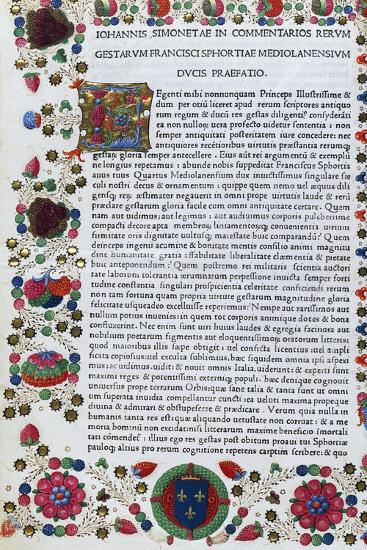 IOHANNIS SIMONETAE IN COMMENTARIOS RERVM
GESTARVM FRANCISCI SPHORTIAE MEDIOLANENSIVM
DVCIS PRAEFATIO.
Legenti mihi nonnunquam Princeps Illustrissime &
dum per otiũ liceret apud rerum scriptores antiquo
rum regum & ducũ res gestas diligenti⁹ cõsyderãti
ea non nullo⁊ mens profecto uidetur sententia: non
semper antiquitati posteritatem iure concedere: nec
antiquiores recẽtioribus uirtutis præstantia rerumq;
gestaꝝ gloria semper antecellere. Eius aũt rei argumentũ & exemplũ
ne longius repetamus: abunde nobis suppeditat Franciscus Sphortia
auus tuus Quartus Mediolanensium dux inuictissimus singulare sæ
culi nostri decus & ornamentum: quippe quem nemo uel æquus dili
gensq; res æstimator negauerit in omni prope uirtutis laude & rerũ
præclare gestarum gloria facile cum omni antiquitate certare. Quem
nam aut uidimus: aut legimus: aut audiuimus corporis pulcherrime
compacti decore apta membroꝝ, liniamentoꝝq; conuenientia uirium
firmitate oris dignitate uultusq; maiestate huic comparandũ? Quem
deinceps ingenii acumine & bonitate mentis consilio animi magnitu
dine humanitate gratia affabilitate liberalitate clementia & pietate
huic anteponendum? Quem postremo rei militaris scientia auctori
tate laborum tolerantia ærumnarum perpessione inuicta semper forti
tudine constantia singulari prospicientia celeritate conficiendi rerum
non tam fortuna quam propria uirtute gestarum magnitudine gloria
felicitate usqueadeo excelluisse reperiemus? Nempe aut rarissimos aut
nullum potius inuenies: in quem tot corporis animique dotes & bona
confluxerint. Nec enim sunt uiri huius laudes & egregia facinora aut
nobilium poetarum figmentis aut eloquentissimoꝝ oratorum litteris:
quod maioribus illis sæpe obtigit: uel conficta licentius: uel ampli
ficata copiosius: uel exculta sublimius, hæc siquidem omnia ipsi aspexi
mus: hæc uidimus. uidit & nouit omnis Italia, uiderunt: & experti sunt
maximi reges & potentissimi externiq; populi. hæc denique cognouit
uniuersus prope terrarum Orbis: quæ sane talia & tanta sunt ut omnẽ
cum superata inuidia compellantur cuncti tanta uel maxima propeque
diuina & admirari & obstupescere & prædicare. Verum quia nulla in
humanis tanta res est: quæ aliquando uetustate non corruat: & a me
moria hominũ non excidat: nisi litterarum maximo beneficio immortali
tati cõmendet: illius ego res gestas post obitum proaui tui Sphortiæ
paulo⁊ altius pro rerum cognitione repetens cartpim scribere: & quo